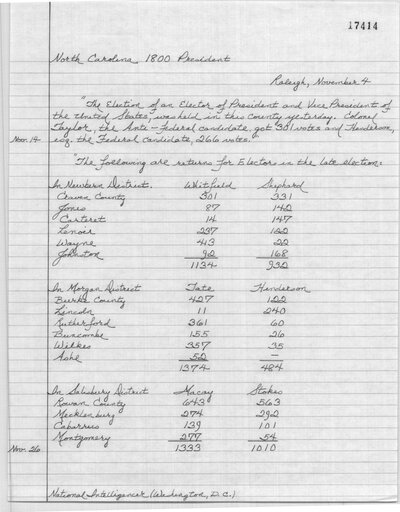 17414
North Carolina 1800 President
Raleigh, November 4
"The Election of an Elector of President and Vice President of
the United States, was held in this County yesterday. Colonel
Taylor, the Anti-Federal candidate got 301 votes and Henderson,
Nov. 14 esq. the Federal candidate, 266 votes."
"The following are returns for Elector in the late election:
In Newbern District. Whitfield Shephard
Craven County 301 331
Jones 87 142
Carteret 14 147
Lenoir 237 122
Wayne 413 22
Johnston 92 168
1134 932
In Morgan District Tate Henderson
Burke County 427 122
Lincoln 11 240
Rutherford 361 60
Buncombe 155 26
Wilkes 357 35
Ashe 52 —
1374 484
In Salisbury District Macay Stokes
Rowan County 643 563
Mecklenburg 274 292
Cabarrus 139 101
Montgomery 277 54
Nov. 26 1333 1010
National Intelligencer (Washington, D.C.)